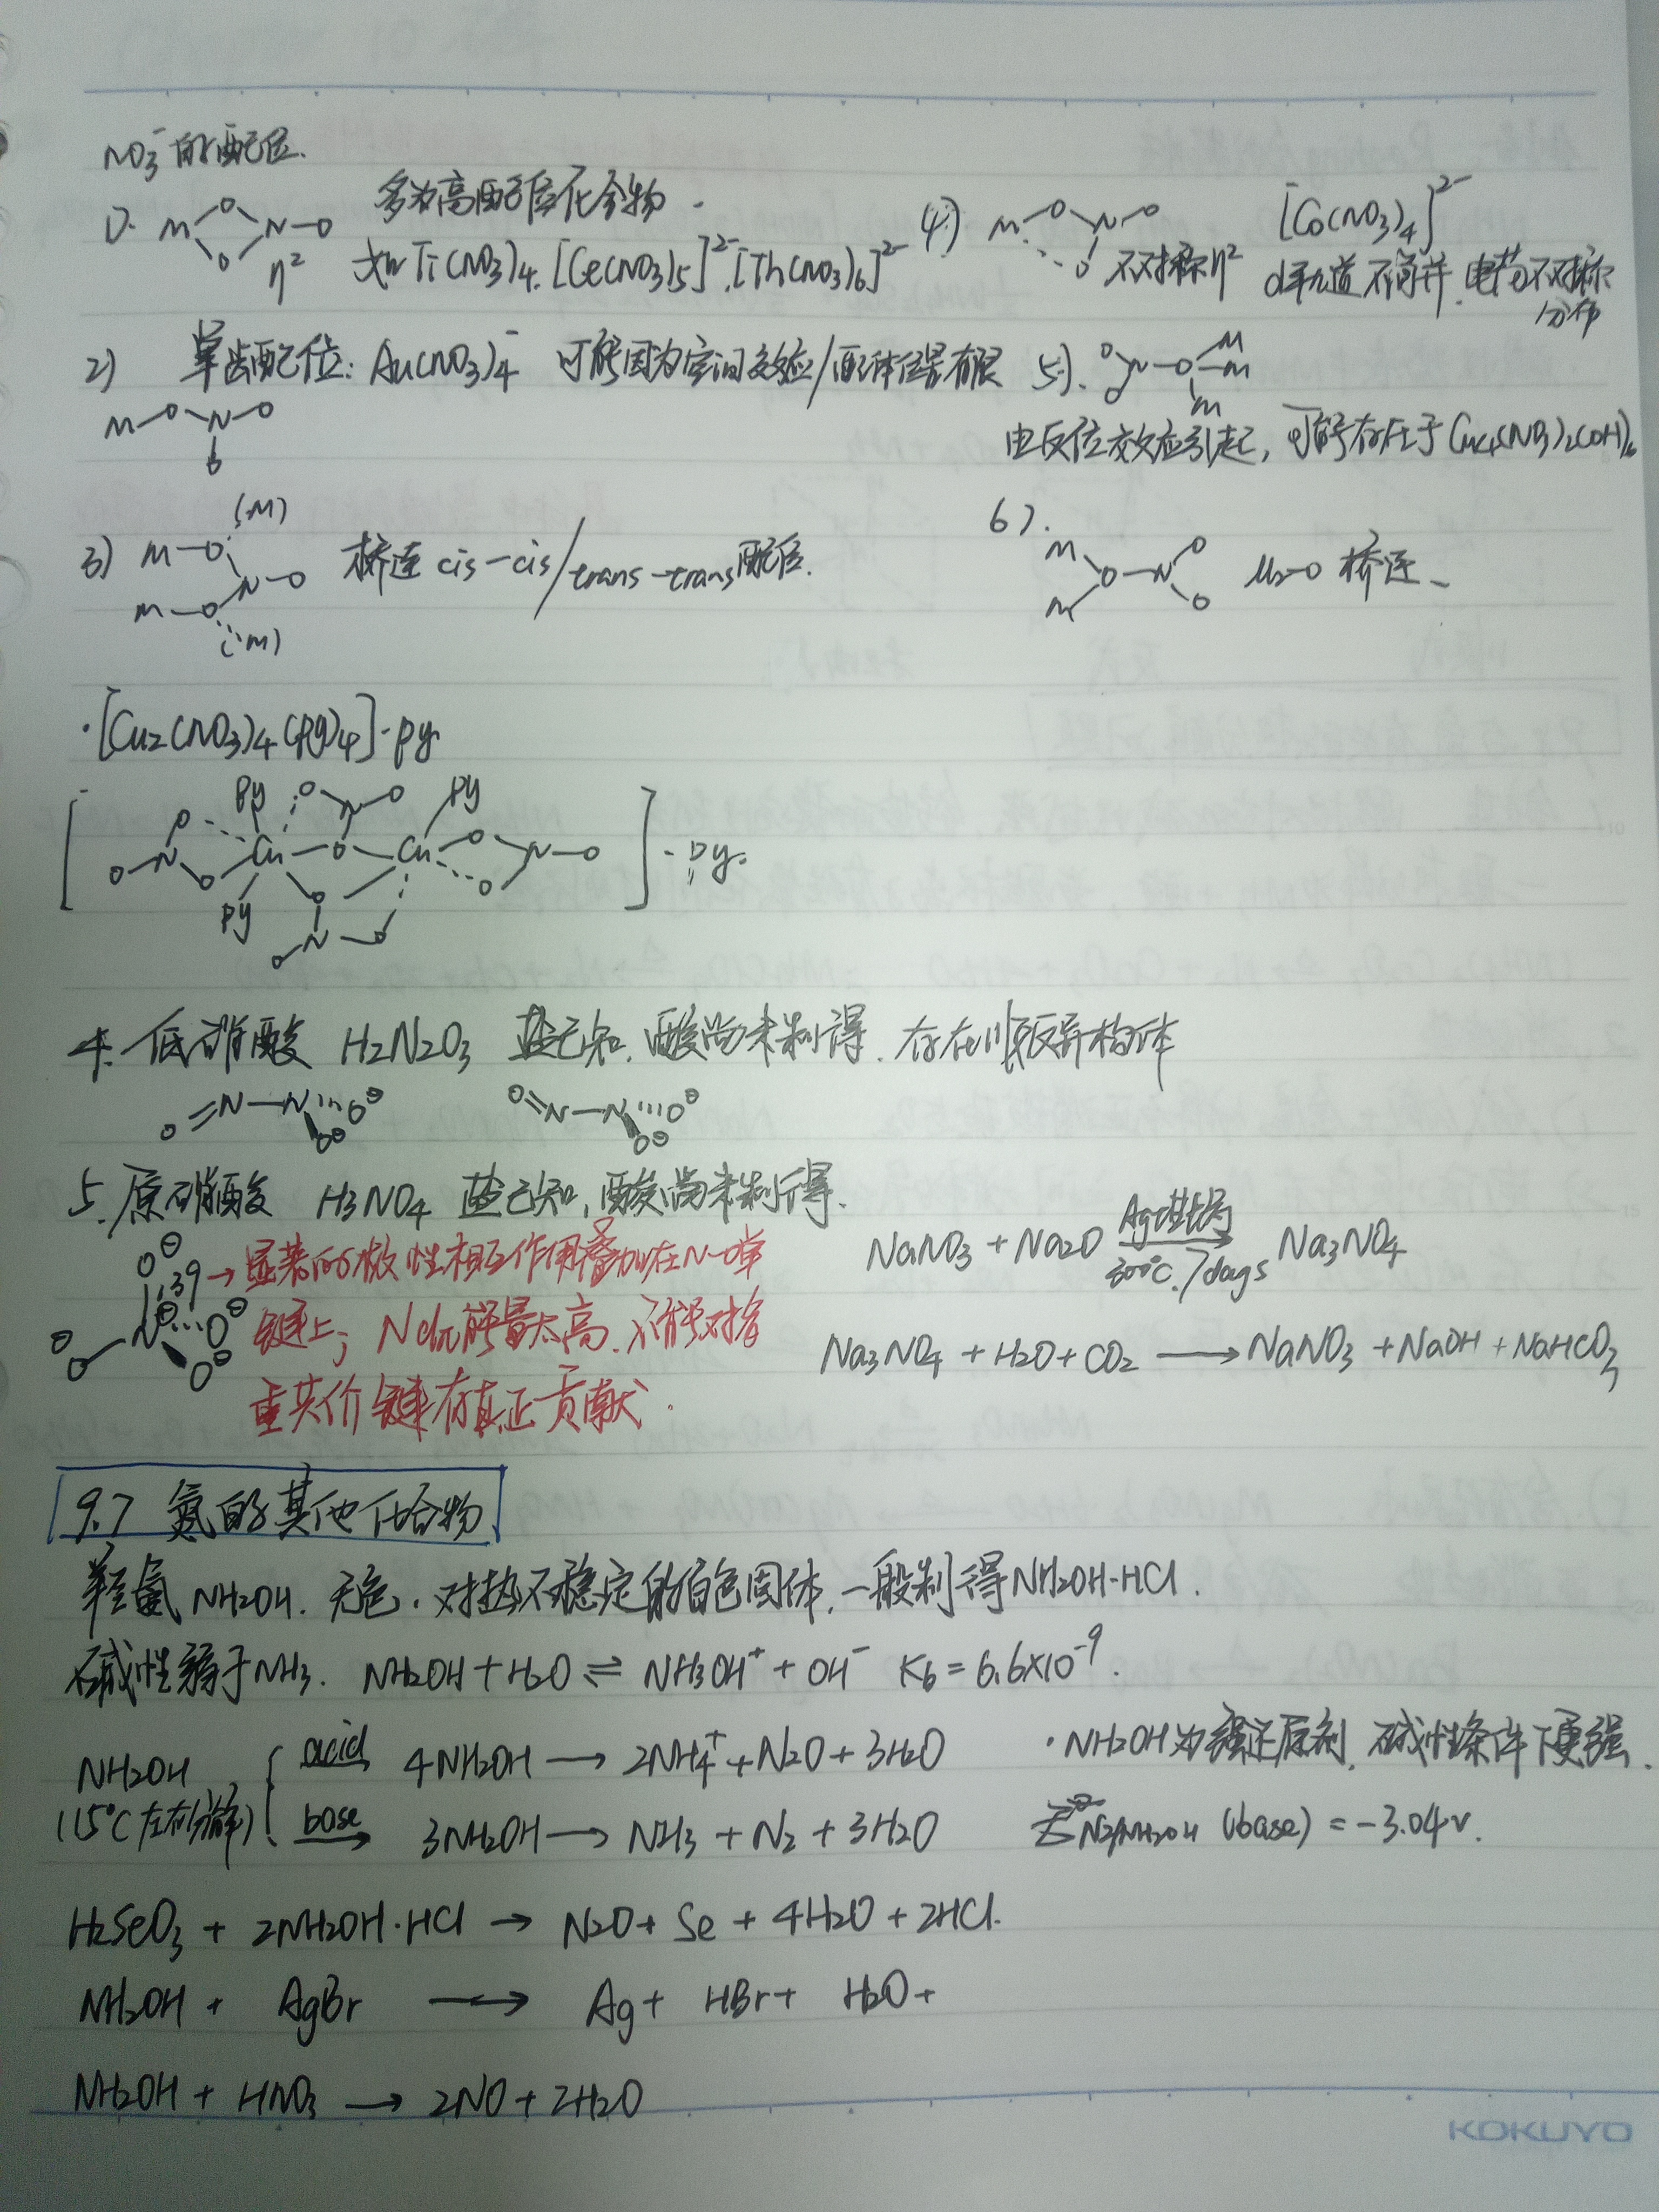 NO3⁻的配位.
1). M O O N-O η² 多为高配位化合物. 如Ti(NO3)4. [Ce(NO3)5]²⁻. [Th(NO3)6]²⁻
4.) M-O N-O O 不对称η² [Co(NO3)4]²⁻ d轨道不简并. 电荷不对称分布
2) 单齿配位: Au(NO3)4⁻ 可能因为空间效应/配体位置有限
M-O-N-O O
5). O O N-O M M M
由反位效应引起, 可能存在于Cu4(NO3)2(OH)6
3) M-O (M) N-O M-O (M) 桥连 cis-cis/trans-trans配位.
6). M M O-N O O μ2-O 桥连
·[Cu2(NO3)4(py)4]·py
[ py O N O py O Cu O Cu O N-O O N O O O py N O O ]·py.
4. 低硝酸 H2N2O3 盐已知, 酸尚未制得. 存在顺反异构体
O=N-N O⊖ O⊖ O=N-N O⊖ O⊖
5. 原硝酸 H3NO4 盐已知, 酸尚未制得.
NaNO3 + Na2O Ag坩埚 300℃. 7days Na3NO4
O⊖ 139 N⊕ O⊖ O⊖ O⊖ → 显著的极性相互作用叠加在N-O单
键上; N d轨能量太高, 不能对多
重共价键有真正贡献.
Na3NO4 + H2O + CO2 ⟶ NaNO3 + NaOH + NaHCO3
9.7 氮的其他化合物
羟氨 NH2OH. 无色. 对热不稳定的白色固体, 一般制得NH2OH·HCl.
碱性弱于NH3. NH2OH + H2O ⇌ NH3OH⁺ + OH⁻ Kb = 6.6×10⁻⁹.
NH2OH (15℃左右分解) { acid 4NH2OH ⟶ 2NH4⁺ + N2O + 3H2O
base 3NH2OH ⟶ NH3 + N2 + 3H2O
·NH2OH为强还原剂, 碱性条件下更强.
E⊖ N2/NH2OH (base) = -3.04V.
H2SeO3 + 2NH2OH·HCl → N2O + Se + 4H2O + 2HCl.
NH2OH + AgBr ⟶ Ag + HBr + H2O +
NH2OH + HNO3 ⟶ 2NO + 2H2O
KOKUYO